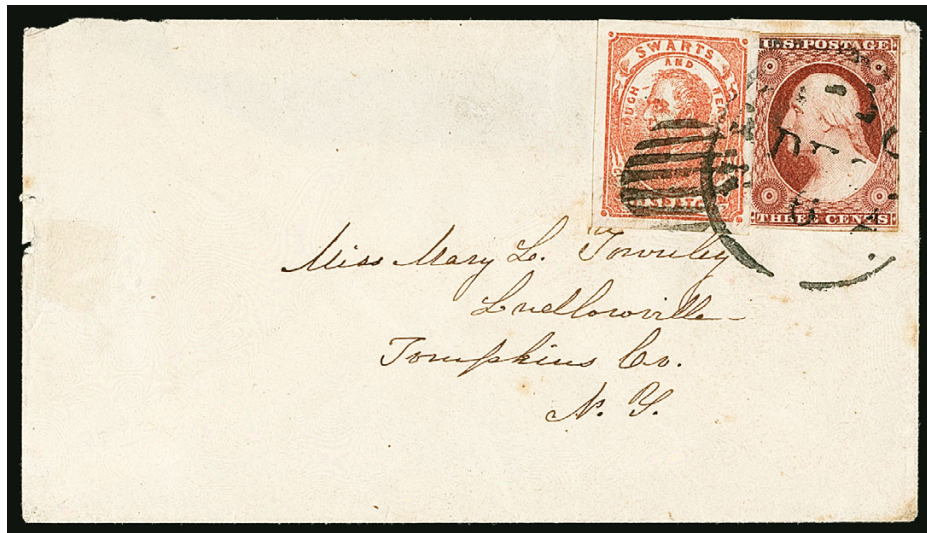 SWARTS
AND
OUGH REA
U.S. POSTAGE
THREE CENTS
Miss Mary L. Townley
Ludlowville
Tompkins Co.
N. Y.